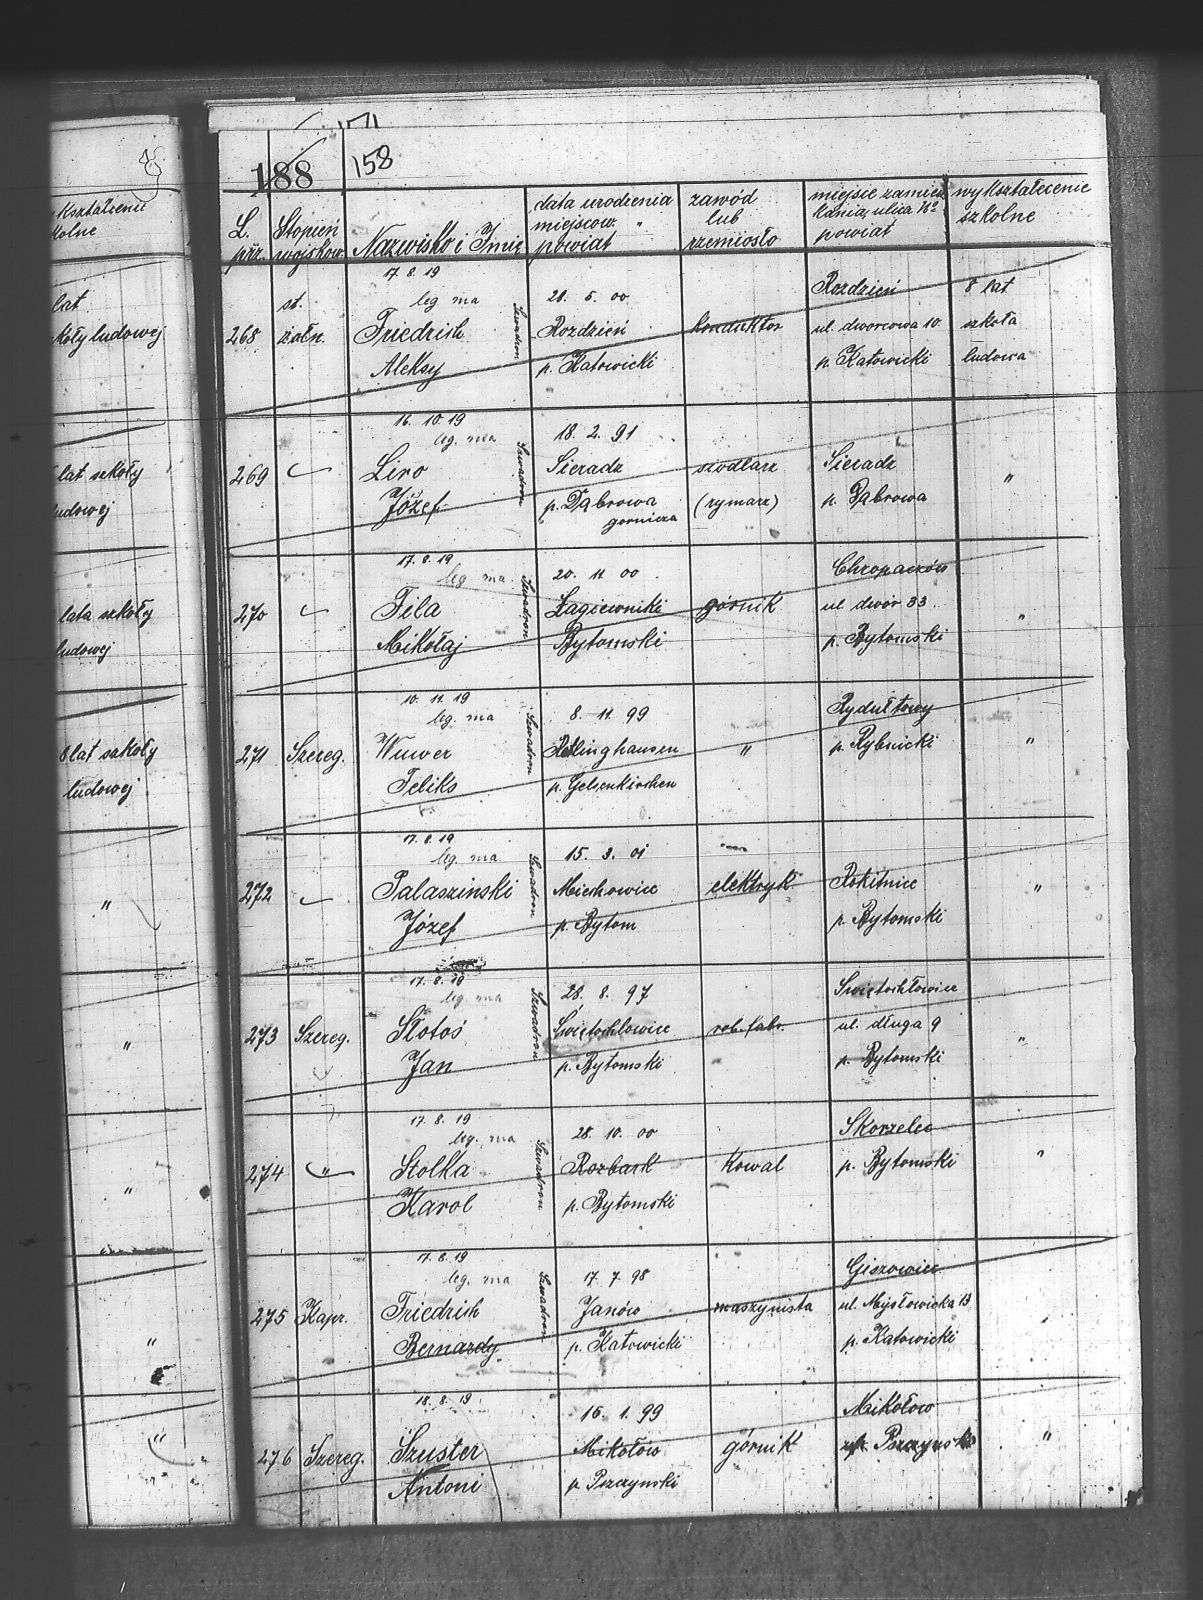 188
158
kształcenie
kolne
lat
koły ludowej
lat szkoły
ludowej
lata szkoły
ludowej
8 lat szkoły
ludowej
"
"
"
"
"
L. prz.
Stopień wojskow.
Nazwisko i Imię
data urodzenia miejscow. " powiat
zawód lub rzemiosło
miejsce zamieszkania, ulica No powiat
wykształcenie szkolne
17. 8. 19
leg ma
268
st. żołn.
Friedrich
Aleksy
Szwadron
21. 5. 00
Rozdzień
p. Katowicki
konduktor
Rozdzień
ul. dworcowa 10.
p. Katowicki
8 lat
szkoła
ludowa
16. 10. 19
leg. ma
269
Liro
Józef
Szwadron
18. 2. 91
Sieradz
p. Dąbrowa
gornicza
siodlarz
(rymarz)
Sieradz
p. Dąbrowa
"
17. 8. 19
leg ma
270
Fila
Mikołaj
Szwadron
20. 11. 00
Łagiewniki
Bytomski
górnik
Chropaczów
ul dwór 33.
p. Bytomski
"
10. 11. 19
leg ma
271
Szereg.
Wuwer
Feliks
Szwadron
8. 11. 99
p. Gelsenkirchen
"
Rydułtowy
p. Rybnicki
"
17. 8. 19
leg ma
272
Palaszinski
Józef
Szwadron
15. 3. 01
Miechowice
p. Bytom
elektryk
Rokitnice
p. Bytomski
"
17. 8.
leg ma
273
Szereg.
Slotoś
Jan
Szwadron
28. 8. 97
Świętochłowice
p. Bytomski
rob. fabr.
Świętochłowice
ul. długa 9
p. Bytomski
"
17. 8. 19
leg. ma
274
"
Stolka
Karol
Szwadron
28. 10. 00
Rozbark
p. Bytomski
Kowal
Skorzelec
p. Bytomski
"
17. 8. 19
leg. ma
275
Kapr.
Friedrich
Bernardy
Szwadron
17. 7. 98
Janów
p. Katowicki
maszynista
Giszowiec
ul. Mysłowicka 13
p. Katowicki
"
18. 8. 19
276
Szereg.
Szuster
Antoni
16. 1. 99
Mikołów
p. Pszczynski
górnik
Mikołów
"